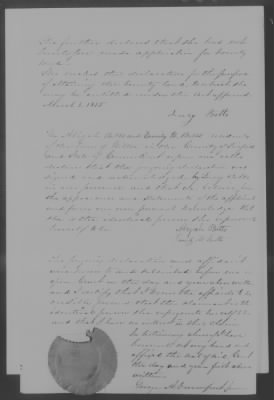 She further declares that she has not
heretofore made application for bounty
land.
She makes this declaration for the purpose
of obtaining the bounty land to which she
may be entitled under the act approved
March 3, 1855
Betts
We, Abijah Betts and Emily B. Betts residents
of the town of
and State of Connecticut upon our oaths
declare that the foregoing declaration was
signed and acknowledged by Betts
in our presence and that we believe from
the appearance and statements of the applicant
and from our own personal knowledge that
she is the identical person she represents
herself to be.
Abijah Betts
Emily B. Betts
The foregoing declaration and affidavit
were sworn to and subscribed before me in
open Court on the day and year above written
and I certify that I know the affiants to be
credible persons that the claimant is the
identical person she represents herself to be
and that I have no interest in this claim.
In testimony whereof I have
hereunto set my hand and
affixed the seal of said Court
the day and year first above
written
George A. Davenport